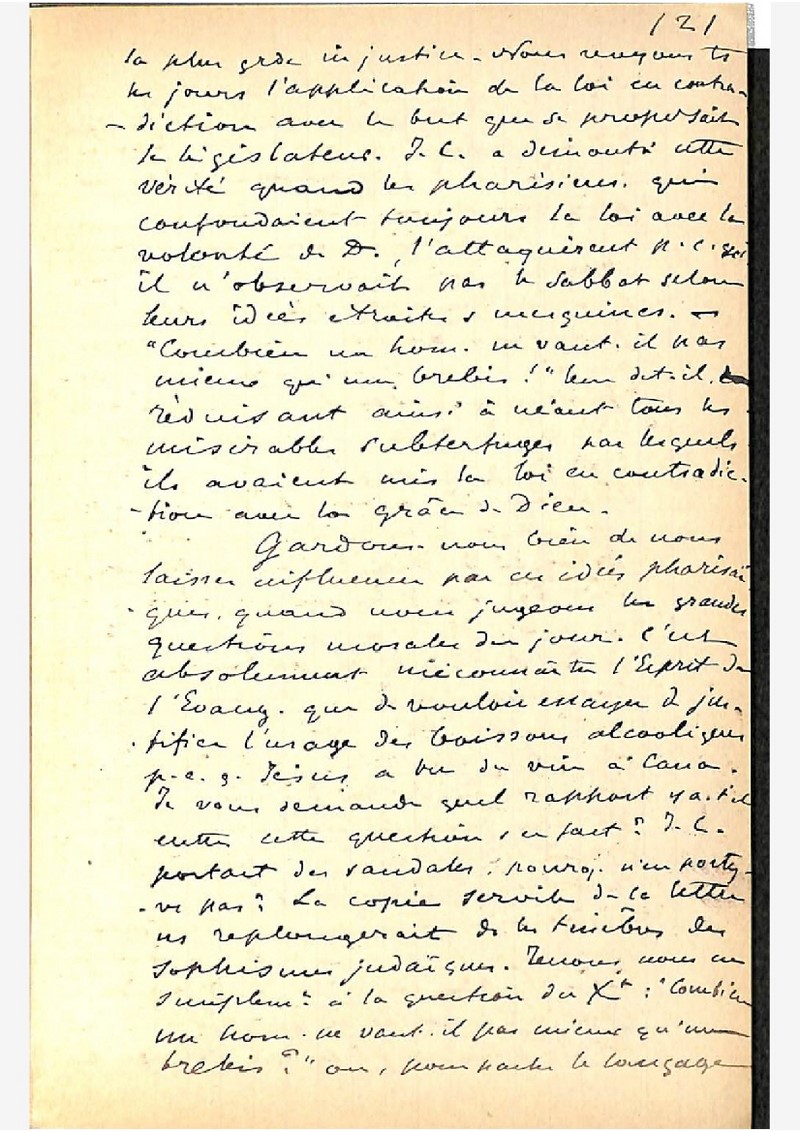 121
la plus grde injustice. Nous voyons ts
les jours l'application de la loi en contra-
-diction avec le but que se proposait
le législateur. J. C. a démontré cette
vérité quand les pharisiens. qui
confondaient toujours la loi avec la
volonté de D., l'attaquèrent p. c. que
il n'observait pas le Sabbat selon
leurs idées étroites & mesquines. -
"Combien un hom. ne vaut-il pas
mieux qu'une brebis!" leur dit-il,
réduisant ainsi à néant tous les
misérables subterfuges par lesquels
ils avaient mis la loi en contradic-
-tion avec la grâce de Dieu.
Gardons-nous bien de nous
laisser influencer par ces idées pharisaï
-ques, quand nous jugeons les grandes
questions morales du jour. C'est
absolument méconnaître l'Esprit de
l'Evang. que de vouloir essayer de jus-
-tifier l'usage des boissons alcooliques
p. c. q. Jésus a bu du vin à Cana.
Je vous demande quel rapport y a-t-il
entre cette question & ce fait? J. C.
portait des sandales, pourq. n'en porte-
-vs pas? La copie servile de la lettre
ns replongerait ds les ténèbres des
sophismes judaïques. Tenons nous en
simplemt à la question du Xt: "Combien
un hom. ne vaut-il pas mieux qu'une
brebis?" ou, pour parler le langage